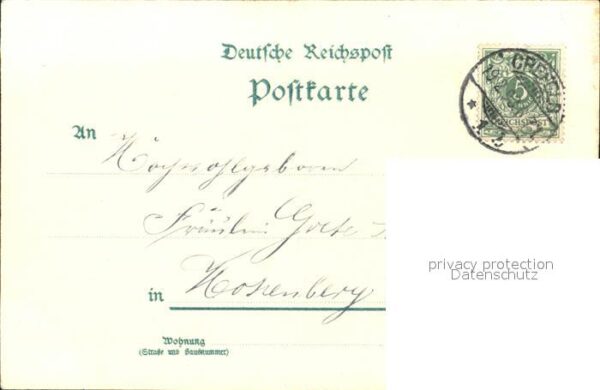 Deutsche Reichspost
Postkarte
CREFELD
5
REICHSPOST
An
Hochwohlgeboren
Fräulein
privacy protection
Datenschutz
in
Wohnung
(Straße und Hausnummer)